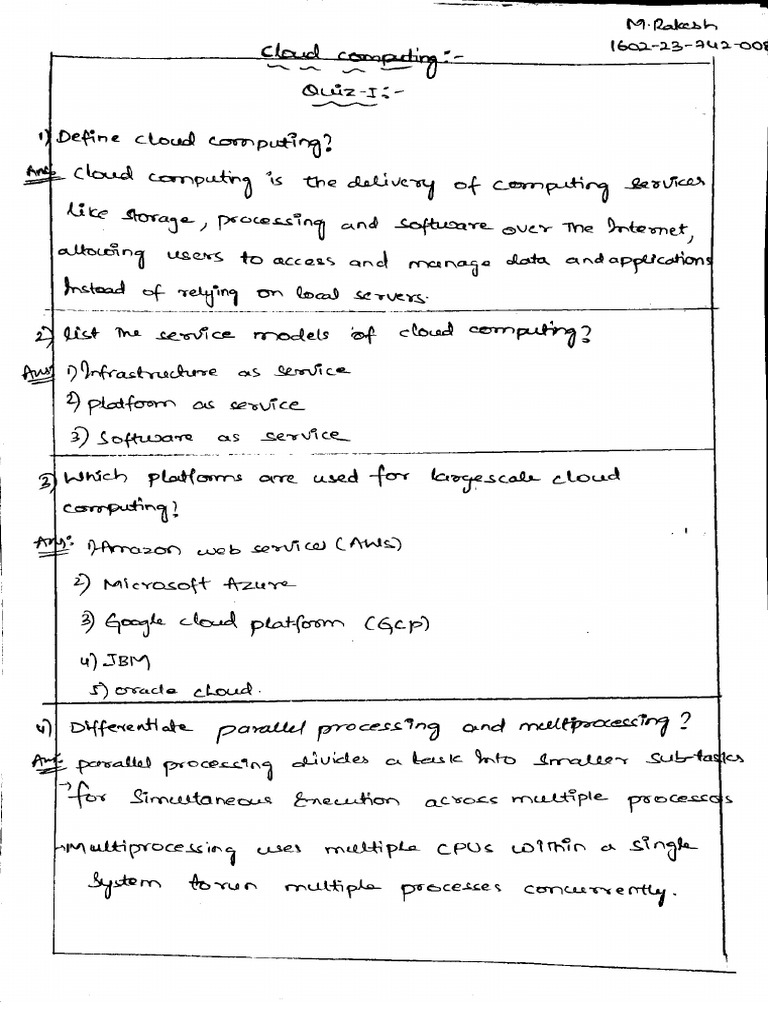 M.Rakesh
1602-23-742-008
Cloud computing:-
Quiz-I:-
1) Define cloud computing?
Ans: Cloud computing is the delivery of computing services
like storage, processing and software over the Internet,
allowing users to access and manage data and applications
Instead of relying on local servers.
2) List the service models of cloud computing?
Ans: 1) Infrastructure as service
2) platform as service
3) Software as service
3) Which platforms are used for largescale cloud
computing?
Ans: 1) Amazon web services (AWS)
2) Microsoft Azure
3) Google cloud platform (GCP)
4) IBM
5) oracle cloud.
4) Differentiate parallel processing and multiprocessing?
Ans: parallel processing divides a task Into smaller sub-tasks
→ for Simultaneous Execution across multiple processors
→ Multiprocessing uses multiple CPUs within a single
System to run multiple processes concurrently.